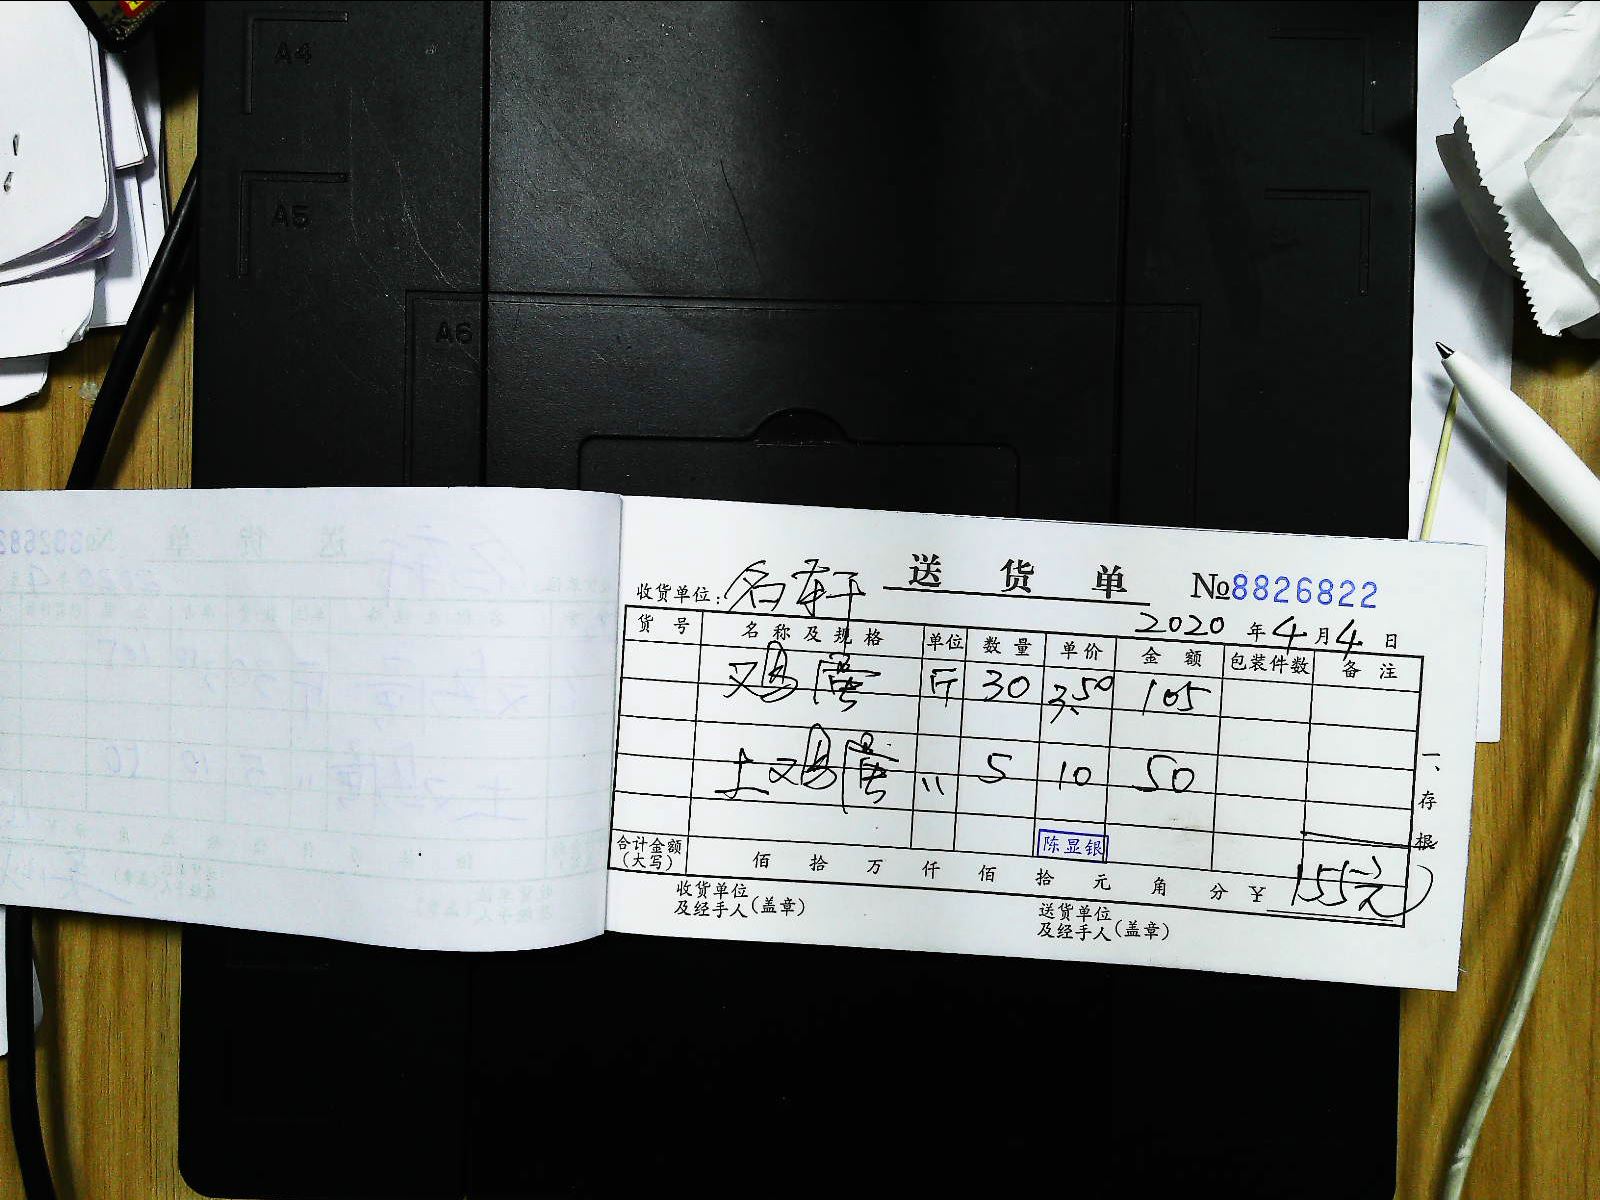 A4
A5
A6
送货单 №8826822
收货单位: 名轩
2020年4月4日
货号 名称及规格 单位 数量 单价 金额 包装件数 备注
鸡蛋 斤 30 3.50 105
土鸡蛋 〃 5 10 50
陈显银
合计金额(大写) 佰 拾 万 仟 佰 拾 元 角 分 ¥ 155元
收货单位及经手人(盖章)
送货单位及经手人(盖章)
一、存根